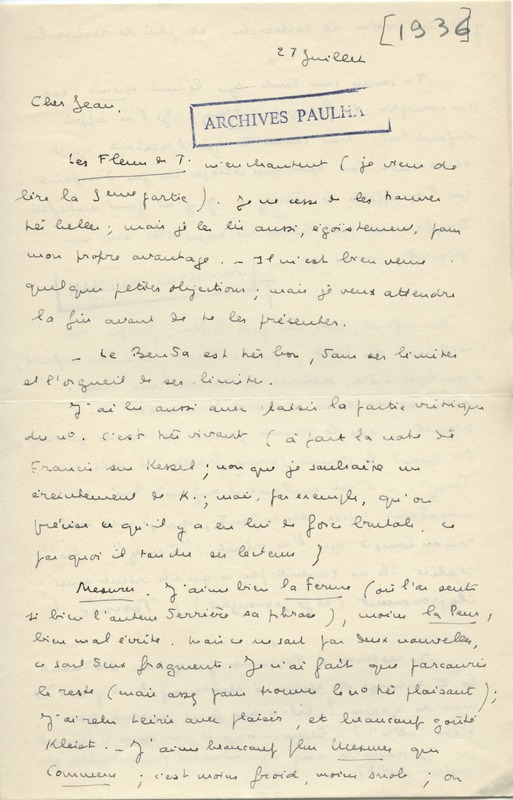 [1936]
27 Juillet
Cher Jean,
ARCHIVES PAULHA
Les Fleurs de T. m'enchantent (je viens de
lire la 3eme partie). Je ne cesse de les trouver
très belles ; mais je les lis aussi, égoïstement, pour
mon propre avantage. — Il m'est bien venu
quelques petites objections ; mais je veux attendre
la fin avant de te les présenter.
— Le Benda est très bon, dans ses limites
et l'orgueil de ses limites.
J'ai lu aussi avec plaisir la partie critique
du n°. C'est très vivant (à part la note de
Francis sur Kessel ; non que je souhaite un
éreintement de K. ; mais, par exemple, qu'on
précise ce qu'il y a en lui de force brutale, ce
par quoi il touche ses lecteurs)
Mesures. J'aime bien la Ferme (où l'on sent
si bien l'auteur derrière sa phrase), moins la Peur,
bien mal écrite. Mais ce ne sont pas deux nouvelles,
ce sont deux fragments. Je n'ai fait que parcourir
le reste (mais assez pour trouver le n° très plaisant) ;
J'ai relu avec plaisir, et beaucoup goûté
Kleist. — J'aime beaucoup plus Mesures que
Commerce ; c'est moins froid, moins snob ; on